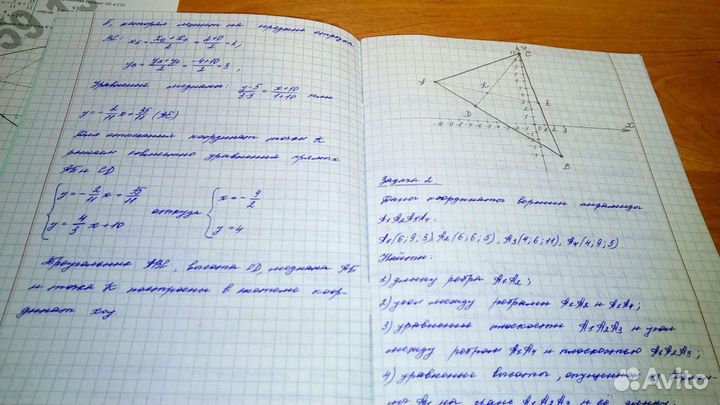 E, которая лежит на середине отрезка
BC: xE = (xB + xC)/2 = (2+0)/2 = 1;
yE = (yB + yC)/2 = (-4+10)/2 = 3,
Уравнение медианы: (y-5)/(3-5) = (x+10)/(1+10) или
y = -2/11 x + 35/11 (AE)
Для отыскания координат точки K
решаем совместно уравнения прямых
AE и CD
{ y = -2/11 x + 35/11
y = 4/3 x + 10
откуда { x = -9/2
y = 4
Треугольник ABC, высота CD, медиана AE
и точка K построены в системе коор-
динат xoy
C
A
K
E
D
B
0 1 2 3
x
Задача 2.
Даны координаты вершин пирамиды
A1A2A3A4.
A1(6;9;3), A2(6;6;5), A3(4;6;11), A4(4;9;5)
Найти:
1) длину ребра A1A2;
2) угол между ребрами A1A2 и A1A4;
3) уравнение плоскости A1A2A3 и угол
между ребром A1A4 и плоскостью A1A2A3;
4) уравнение высоты, опущенной из
A4 на грань A1A2A3 и её длину;
Avito